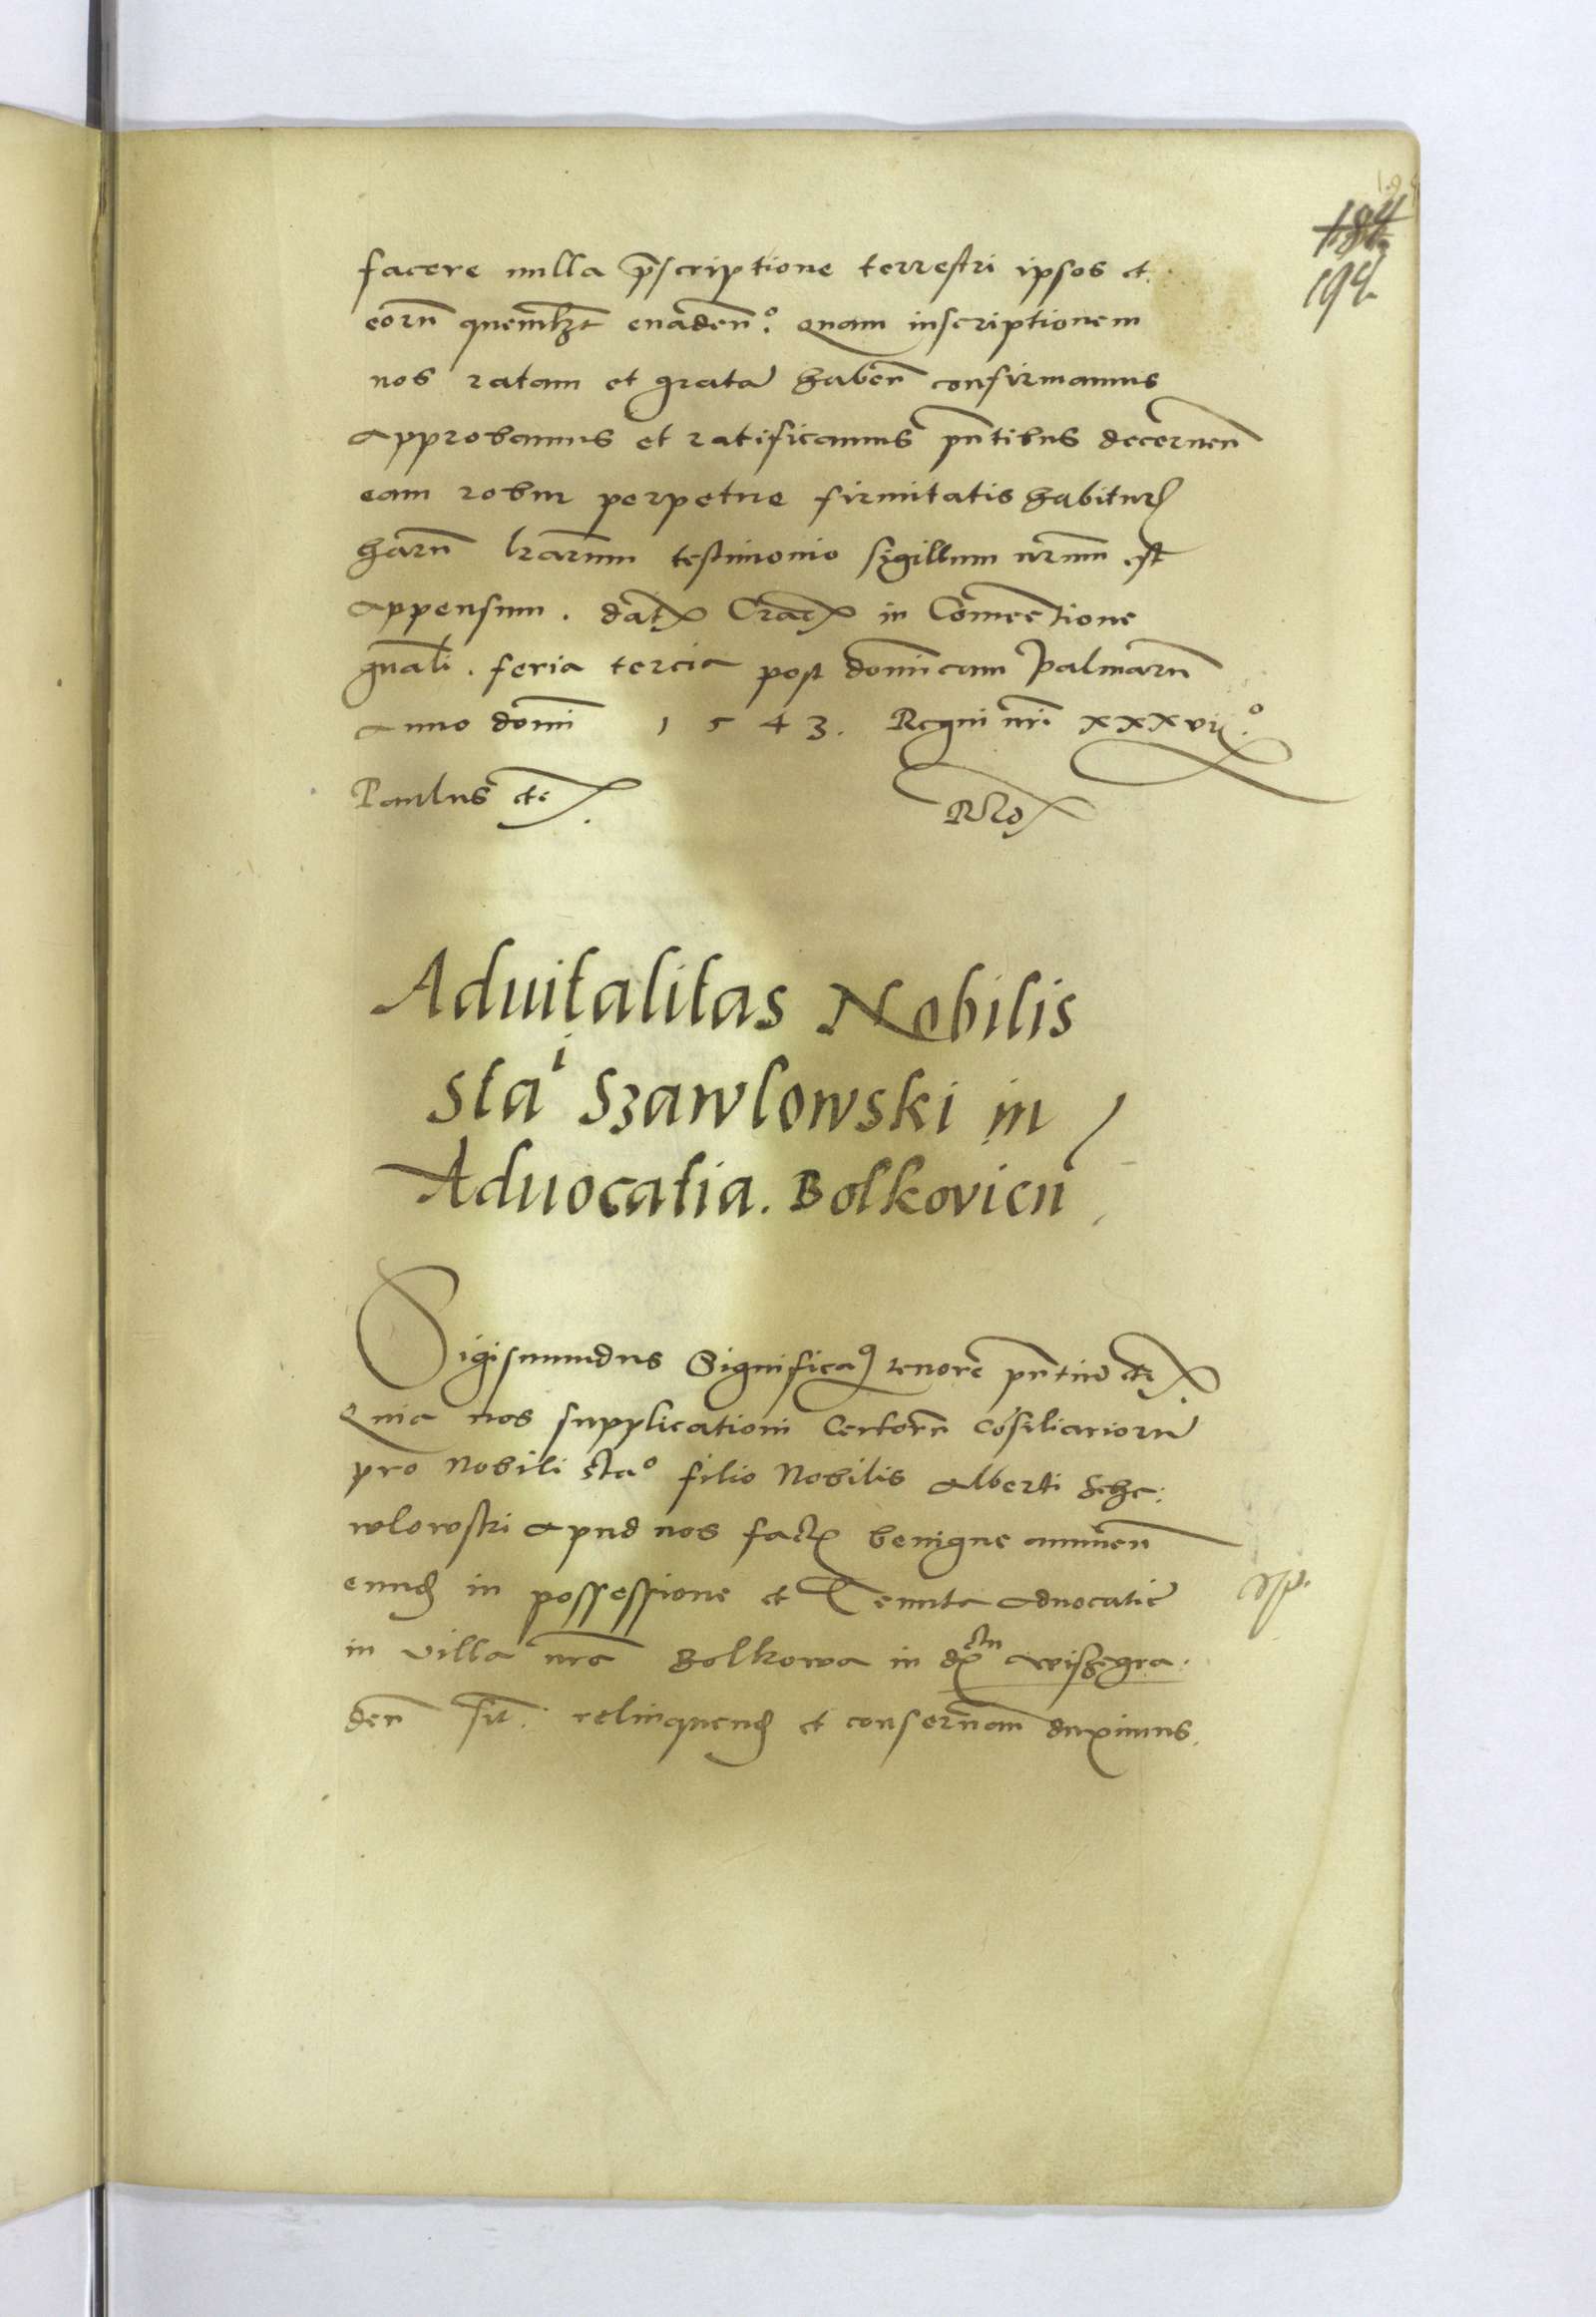 184
194
facere nulla p̄scriptione terrestri ipsos et
eorū quemlꝫt euadeñ. Quam inscriptionem
nos ratam et gratā habeñ confirmamus
approbamus et ratificamus pñtibus decerneñ
eam robur perpetue firmitatis habitur
harū lrarum testimonio sigillum nrum est
appensum. dat Crac in Conuentione
gnali. feria tercia post dominicam Palmarū
Anno domi 1543. Regni nri xxxvii°.
Paulus etc
Aduitalitas Nobilis
Stai Szawlowski in
Aduocatia. Bolkovicn
Sigismundus Significaꝰ tenore pñtiū etc
Quia nos supplicationi Certorū Cōsiliariorū
pro Nobili Stao filio Nobilis Alberti Scha:
wlowski apud nos fact benigne annueñ
eund in possessione et Tenuta aduocatie
in villa nra Bolkowa in dstu Wiszegra
deñ sit. relinquend et conseruam duximus.